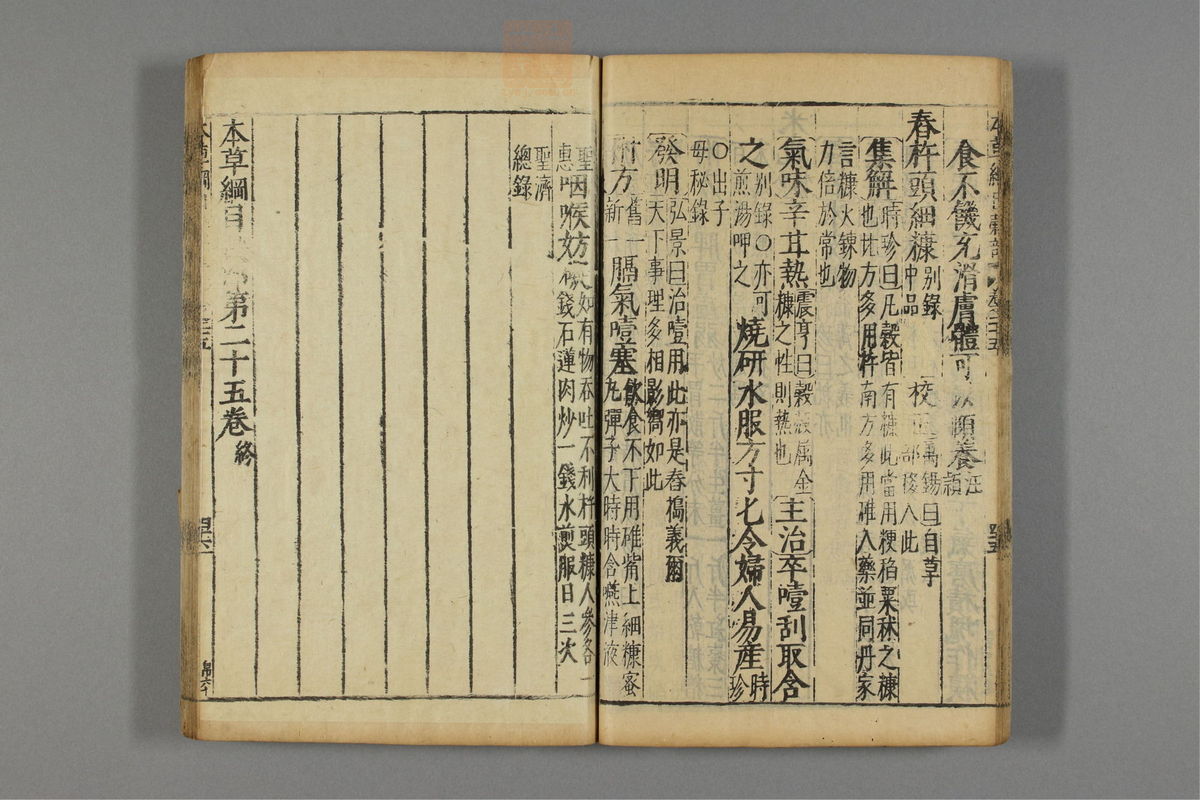 食不饑充滑膚體可以頤養汪頴
舂杵頭細糠别錄中品 校正禹錫曰自草部移入此
集解時珍曰凡穀皆有糠此當用粳稻粟秫之糠也北方多用杵南方多用碓入藥並同丹家
言糠火鍊物力倍於常也
氣味辛甘熱震亨曰穀殻属金糠之性則熱也主治卒噎刮取含
之别錄○亦可煎湯呷之燒研水服方寸匕令婦人易産時珍
○出子母秘錄
發明弘景曰治噎用此亦是舂搗義爾天下事理多相影嚮如此
附方舊一新一膈氣噎塞飲食不下用碓觜上細糠蜜丸彈子大時時含嚥津液
聖惠咽喉妨礙如有物吞吐不利杵頭糠人參各一錢石蓮肉炒一錢水煎服日三次
聖濟總錄
本草綱目 第二十五卷終